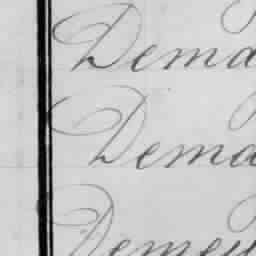 Dema
Dema
Demey